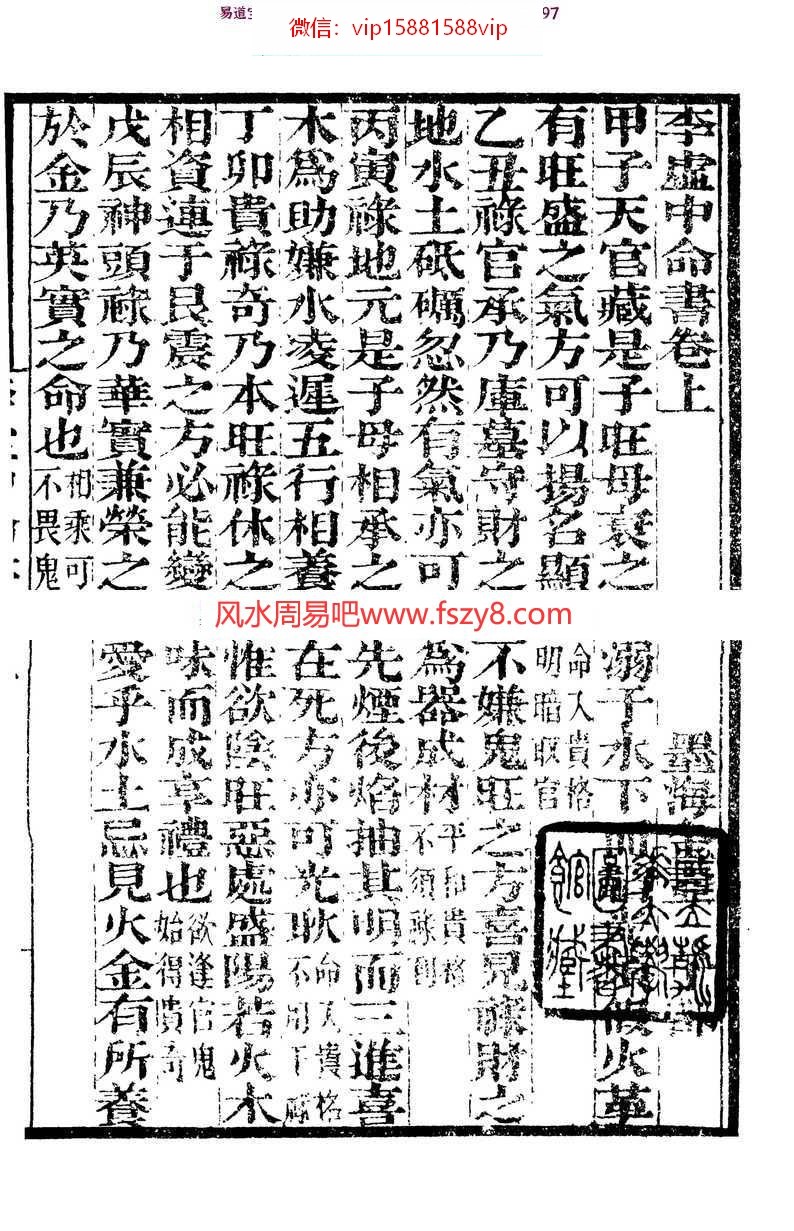 易道
微信：vip15881588vip
97
李虛中命書卷上
墨海金壺 子部
甲子天官藏是子旺母衰之
溺于水下
火革
有旺盛之氣方可以揚名顯
命入貴格
明暗取官
乙丑祿官承乃庫墓守財之
不嫌鬼旺之方喜見祿財之
地水土砥礪忽然有氣亦可
為器成材
平和貴格
不須祿到
丙寅祿地元是子母相承之
先煙後焰抽其明而三進喜
木為助嫌水凌遲五行相養
在死方亦可光耿
命入貴格
丁卯貴祿奇乃本旺祿休之
惟欲陰旺惡處盛陽若火木
相資連于艮震之方必能變
味而成享禮也
欲逢官鬼
始得貴奇
戊辰神頭祿乃華實兼榮之
愛乎水土忌見火金有所養
於金乃英實之命也
相乘可
不畏鬼
风水周易吧www.fszy8.com